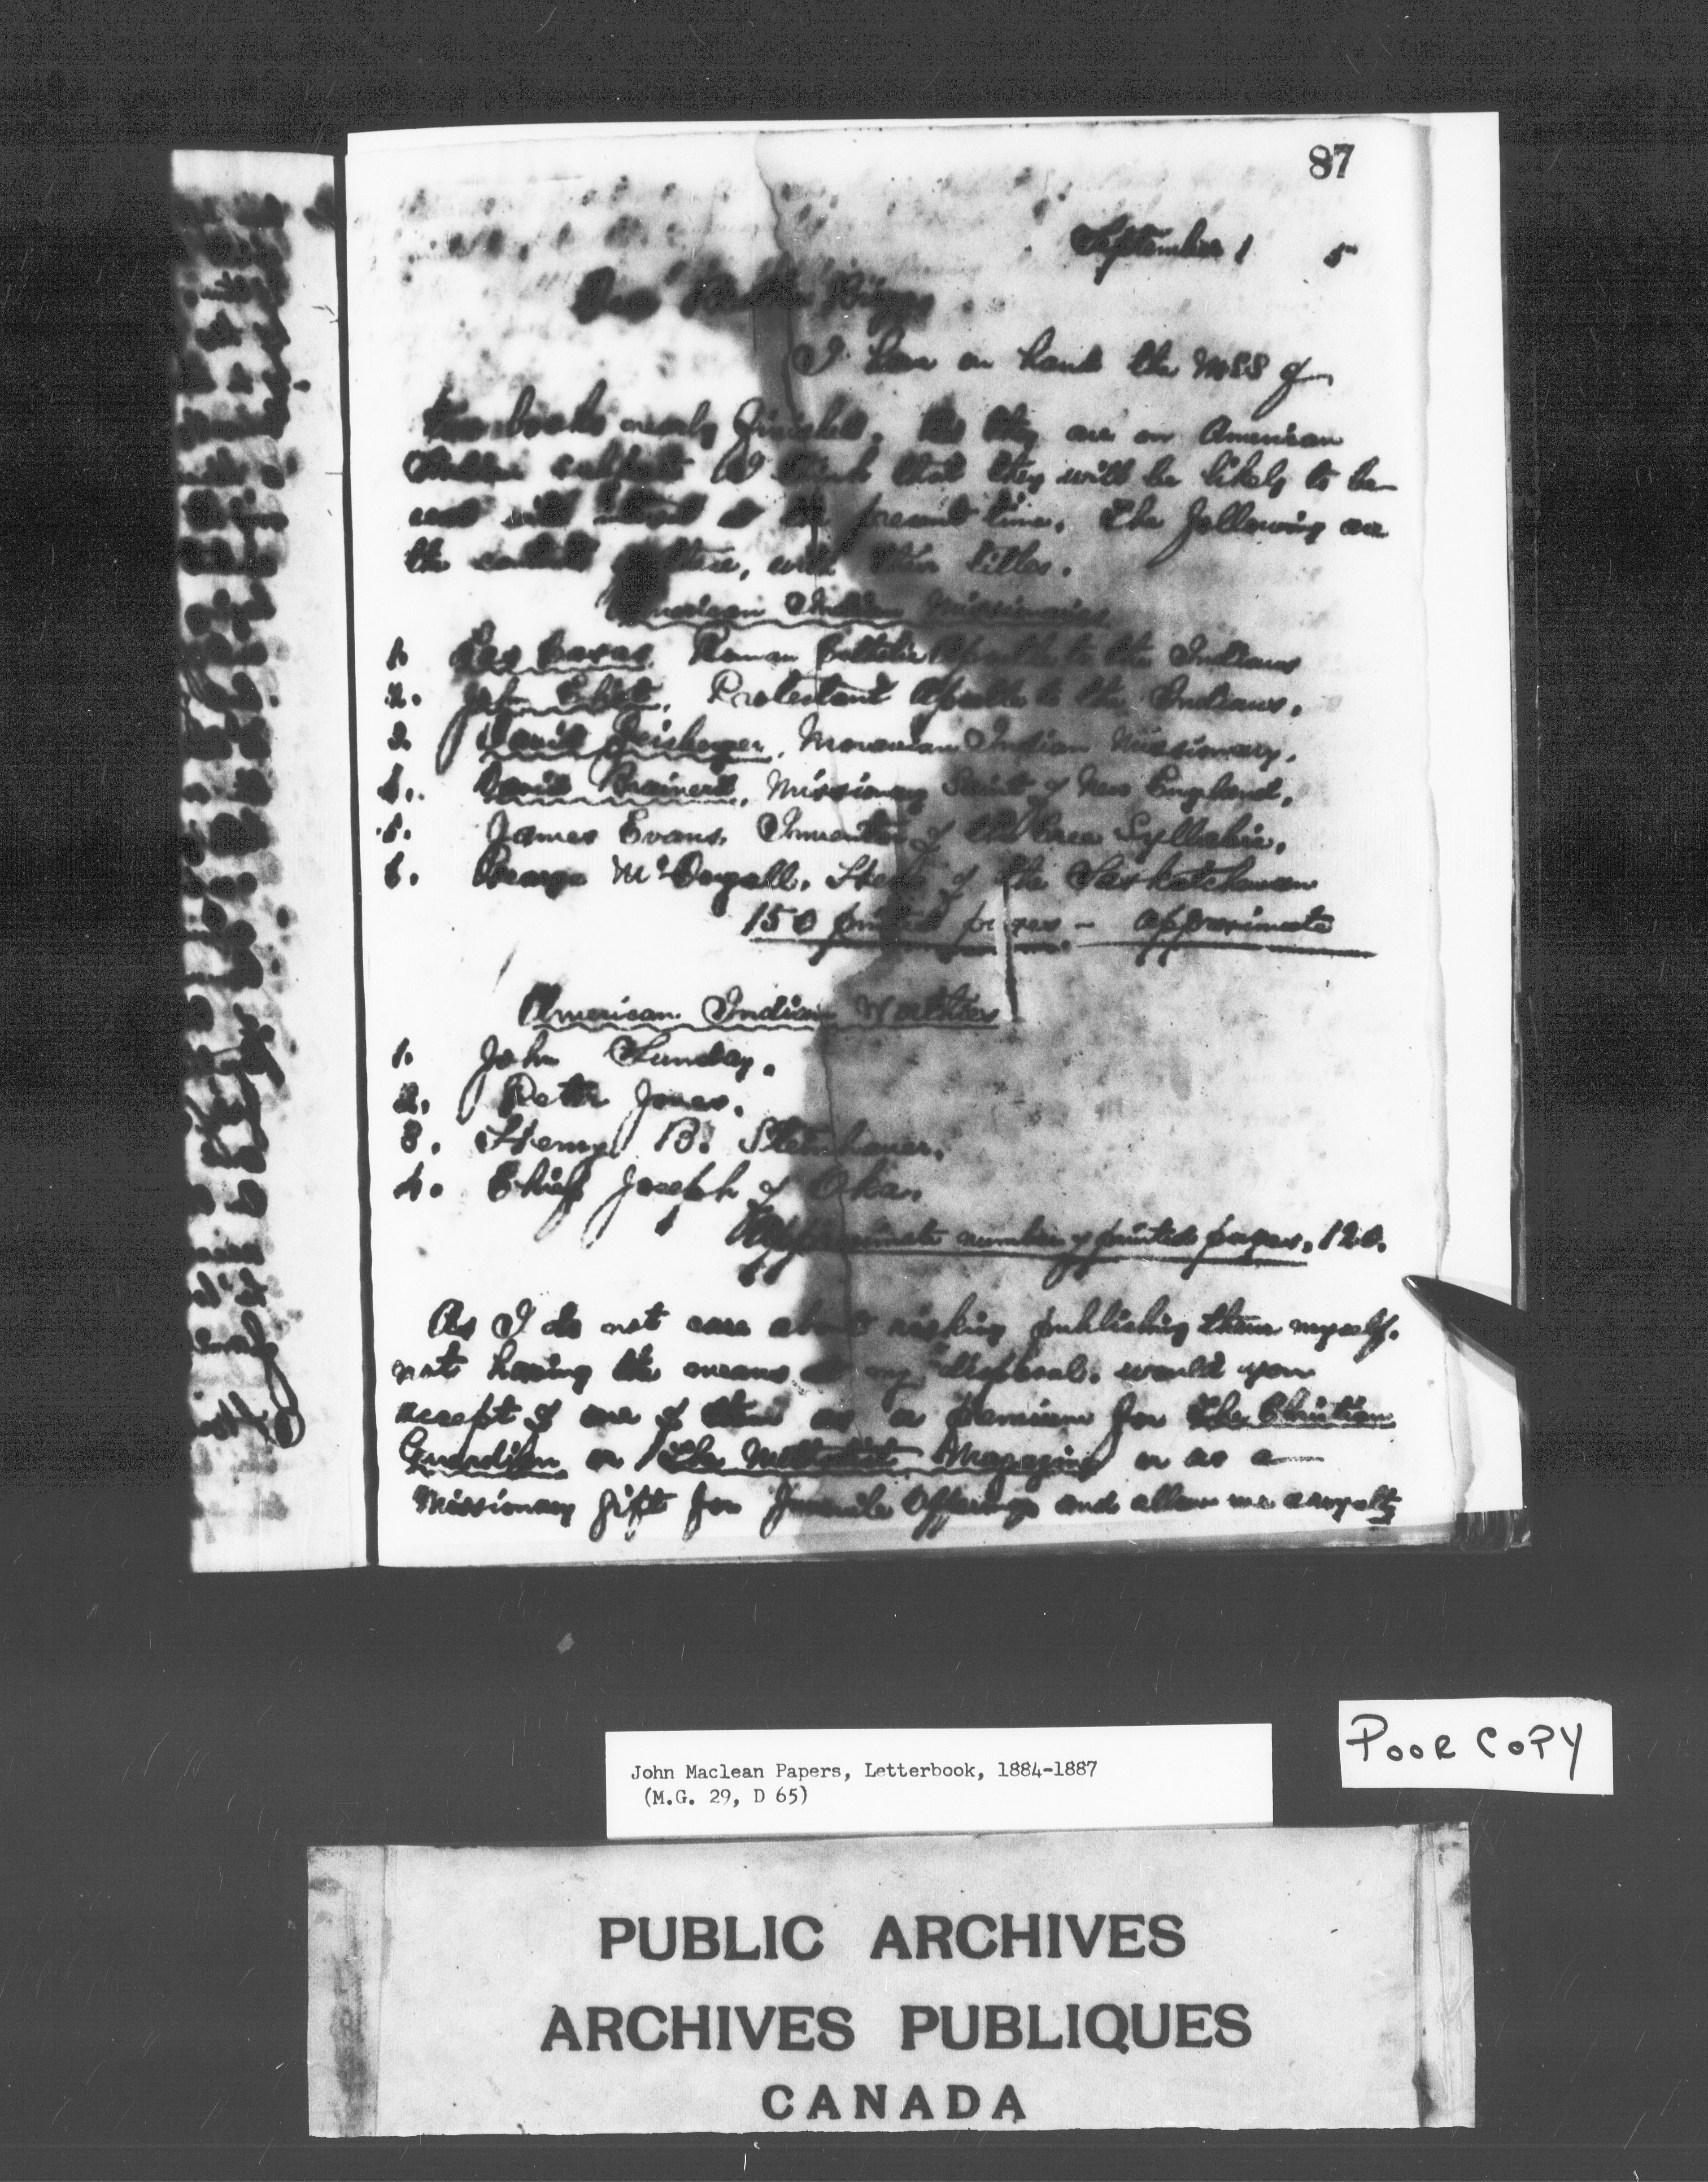 87
September 1 5
Dear Brother Briggs
I have on hand the MSS of
two books nearly finished. As they are on American
Indian subjects I think that they will be likely to be
read with interest at the present time. The following are
the contents of these, with their titles.
American Indian Missionaries
1. Las Casas, Roman Catholic Apostle to the Indians
2. John Eliot, Protestant Apostle to the Indians.
3. David Zeisberger, Moravian Indian Missionary.
4. David Brainerd, Missionary Saint of New England.
5. James Evans, Inventor of the Cree Syllabic.
6. George McDougall, Hero of the Saskatchewan
150 printed pages - approximate
American Indian Worthies
1. John Sunday.
2. Peter Jones.
3. Henry B. Steinhauer.
4. Chief Joseph of Oka.
Approximate number of printed pages, 120.
As I do not care about risking publishing them myself,
not having the means at my disposal, would you
accept of one of them as a premium for The Christian
Guardian or The Methodist Magazine or as a
Missionary gift for Juvenile Offerings and allow me a royalty
POOR COPY
John Maclean Papers, Letterbook, 1884-1887
(M.G. 29, D 65)
PUBLIC ARCHIVES
ARCHIVES PUBLIQUES
CANADA